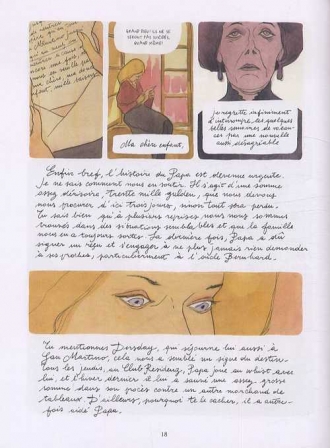 GRAND DIEU! ILS NE SE
SERONT PAS SUICIDÉS,
QUAND MÊME!
Ma chère enfant,
je regrette infiniment
d'interrompre les quelques
belles semaines de vacan-
ces par une nouvelle
aussi désagréable
Enfin bref, l'histoire du Papa est devenue urgente.
Je ne sais comment nous en sortir. Il s'agit d'une somme
assez dérisoire, trente mille gulden, que nous devons
nous procurer d'ici trois jours, sinon tout sera perdu.
Tu sais bien qu'à plusieurs reprises nous nous sommes
trouvés dans des situations semblables et que la famille
nous en a toujours sortis. La dernière fois, Papa a dû
signer un reçu et s'engager à ne plus jamais rien demander
à ses proches, particulièrement à l'oncle Bernhard.
Tu mentionnes Dorsday, qui séjourne lui aussi à
San Martino, cela nous a semblé un signe du destin.
Tous les jeudis, au Club Residenz, Papa joue au whist avec
lui, et l'hiver dernier il lui a sauvé une assez grosse
somme dans son procès contre un autre marchand de
tableaux. D'ailleurs, pourquoi te le cacher, il a autre-
fois aidé Papa.
18